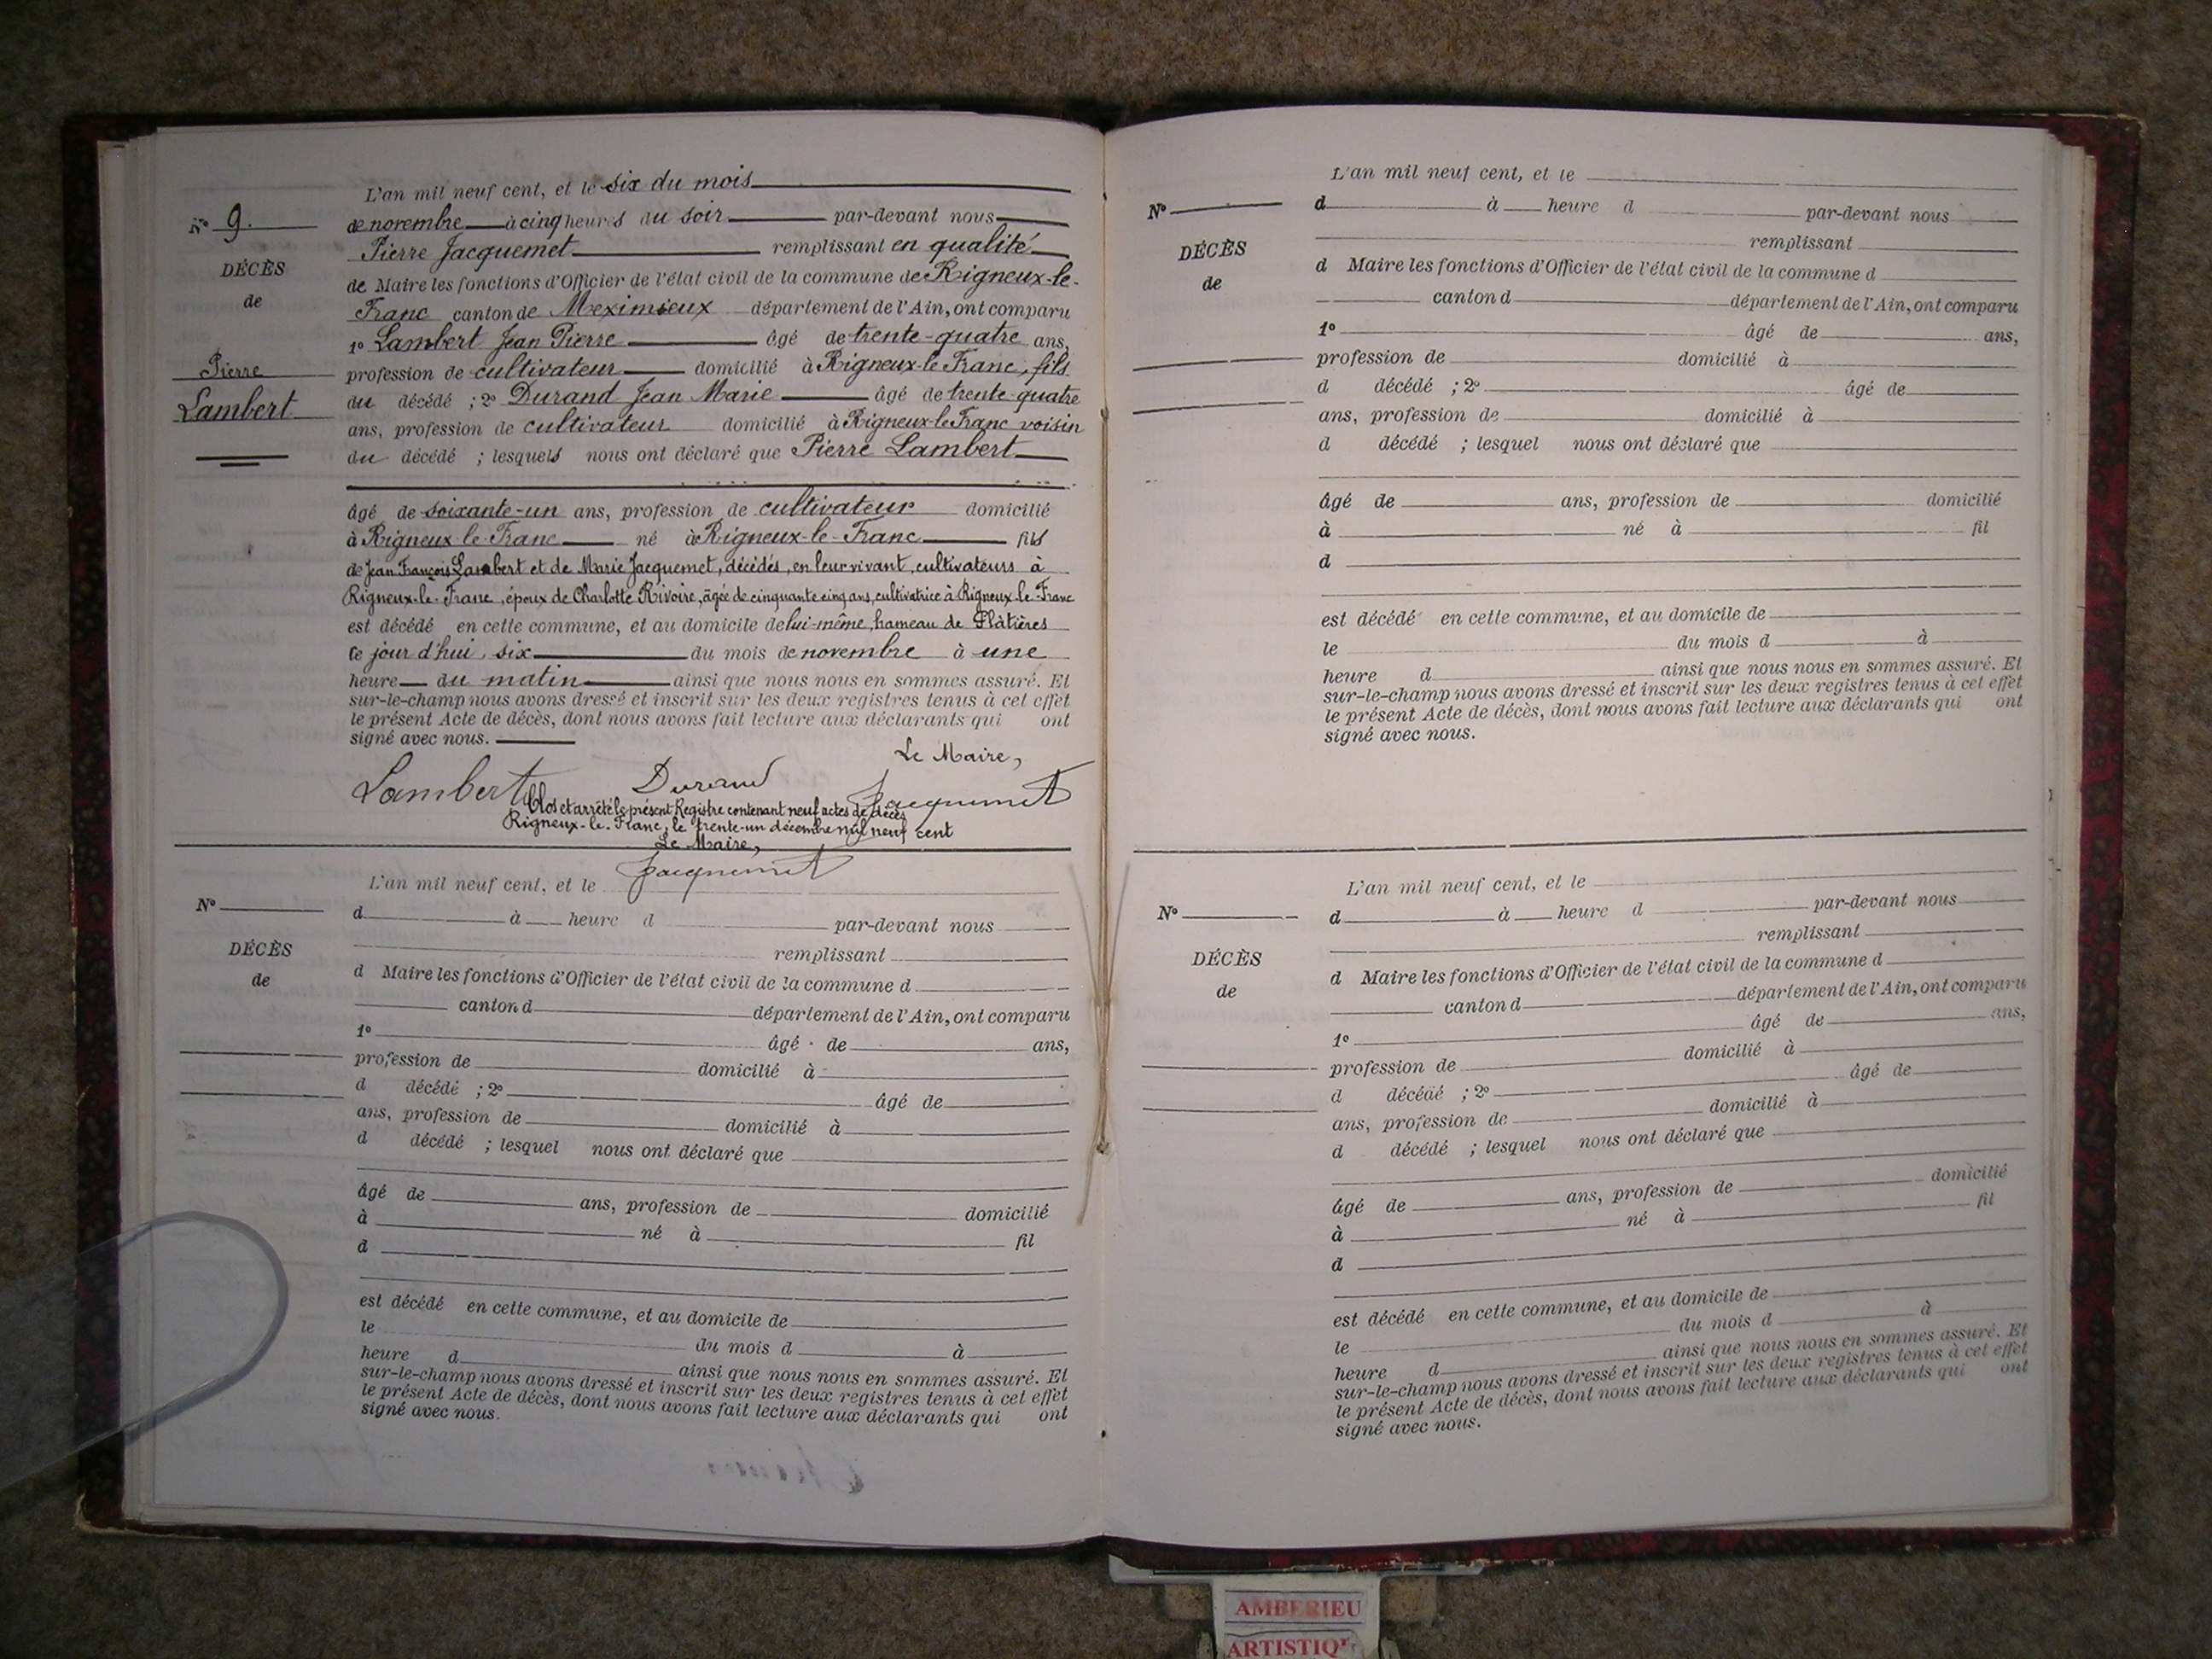 L'an mil neuf cent, et le six du mois
N° 9.
de novembre à cinq heures du soir par-devant nous
Pierre Jacquemet remplissant en qualité
DÉCÈS
de Maire les fonctions d'Officier de l'état civil de la commune de Rigneux-le-
de
Franc canton de Meximieux département de l'Ain, ont comparu
1° Lambert Jean Pierre âgé de trente-quatre ans,
Pierre
profession de cultivateur domicilié à Rigneux-le-Franc, fils
Lambert
du décédé ; 2° Durand Jean Marie âgé de trente-quatre
ans, profession de cultivateur domicilié à Rigneux-le-Franc voisin
du décédé ; lesquels nous ont déclaré que Pierre Lambert
âgé de soixante-un ans, profession de cultivateur domicilié
à Rigneux-le-Franc né à Rigneux-le-Franc fils
de Jean François Lambert et de Marie Jacquemet, décédés, en leur vivant, cultivateurs à
Rigneux-le-Franc, époux de Charlotte Rivoire, âgée de cinquante cinq ans, cultivatrice à Rigneux-le-Franc
est décédé en cette commune, et au domicile de lui-même, hameau de Platières
ce jour d'hui, six du mois de novembre à une
heure du matin ainsi que nous nous en sommes assuré. Et
sur-le-champ nous avons dressé et inscrit sur les deux registres tenus à cet effet
le présent Acte de décès, dont nous avons fait lecture aux déclarants qui ont
signé avec nous.
Le Maire,
Lambert Durand Jacquemet
Clos et arrêté le présent Registre contenant neuf actes de décès
Rigneux-le-Franc, le trente-un décembre mil neuf cent
Le Maire,
Jacquemet
L'an mil neuf cent, et le
N°
d à heure d par-devant nous
remplissant
DÉCÈS
d Maire les fonctions d'Officier de l'état civil de la commune d
de
canton d département de l'Ain, ont comparu
1° âgé de ans,
profession de domicilié à
d décédé ; 2° âgé de
ans, profession de domicilié à
d décédé ; lesquel nous ont déclaré que
âgé de ans, profession de domicilié
à né à fil
d
est décédé en cette commune, et au domicile de
le du mois d à
heure d ainsi que nous nous en sommes assuré. Et
sur-le-champ nous avons dressé et inscrit sur les deux registres tenus à cet effet
le présent Acte de décès, dont nous avons fait lecture aux déclarants qui ont
signé avec nous.
L'an mil neuf cent, et le
N°
d à heure d par-devant nous
remplissant
DÉCÈS
d Maire les fonctions d'Officier de l'état civil de la commune d
de
canton d département de l'Ain, ont comparu
1° âgé de ans,
profession de domicilié à
d décédé ; 2° âgé de
ans, profession de domicilié à
d décédé ; lesquel nous ont déclaré que
âgé de ans, profession de domicilié
à né à fil
d
est décédé en cette commune, et au domicile de
le du mois d à
heure d ainsi que nous nous en sommes assuré. Et
sur-le-champ nous avons dressé et inscrit sur les deux registres tenus à cet effet
le présent Acte de décès, dont nous avons fait lecture aux déclarants qui ont
signé avec nous.
L'an mil neuf cent, et le
N°
d à heure d par-devant nous
remplissant
DÉCÈS
d Maire les fonctions d'Officier de l'état civil de la commune d
de
canton d département de l'Ain, ont comparu
1° âgé de ans,
profession de domicilié à
d décédé ; 2° âgé de
ans, profession de domicilié à
d décédé ; lesquel nous ont déclaré que
âgé de ans, profession de domicilié
à né à fil
d
est décédé en cette commune, et au domicile de
le du mois d à
heure d ainsi que nous nous en sommes assuré. Et
sur-le-champ nous avons dressé et inscrit sur les deux registres tenus à cet effet
le présent Acte de décès, dont nous avons fait lecture aux déclarants qui ont
signé avec nous.
AMBERIEU
ARTISTIQ